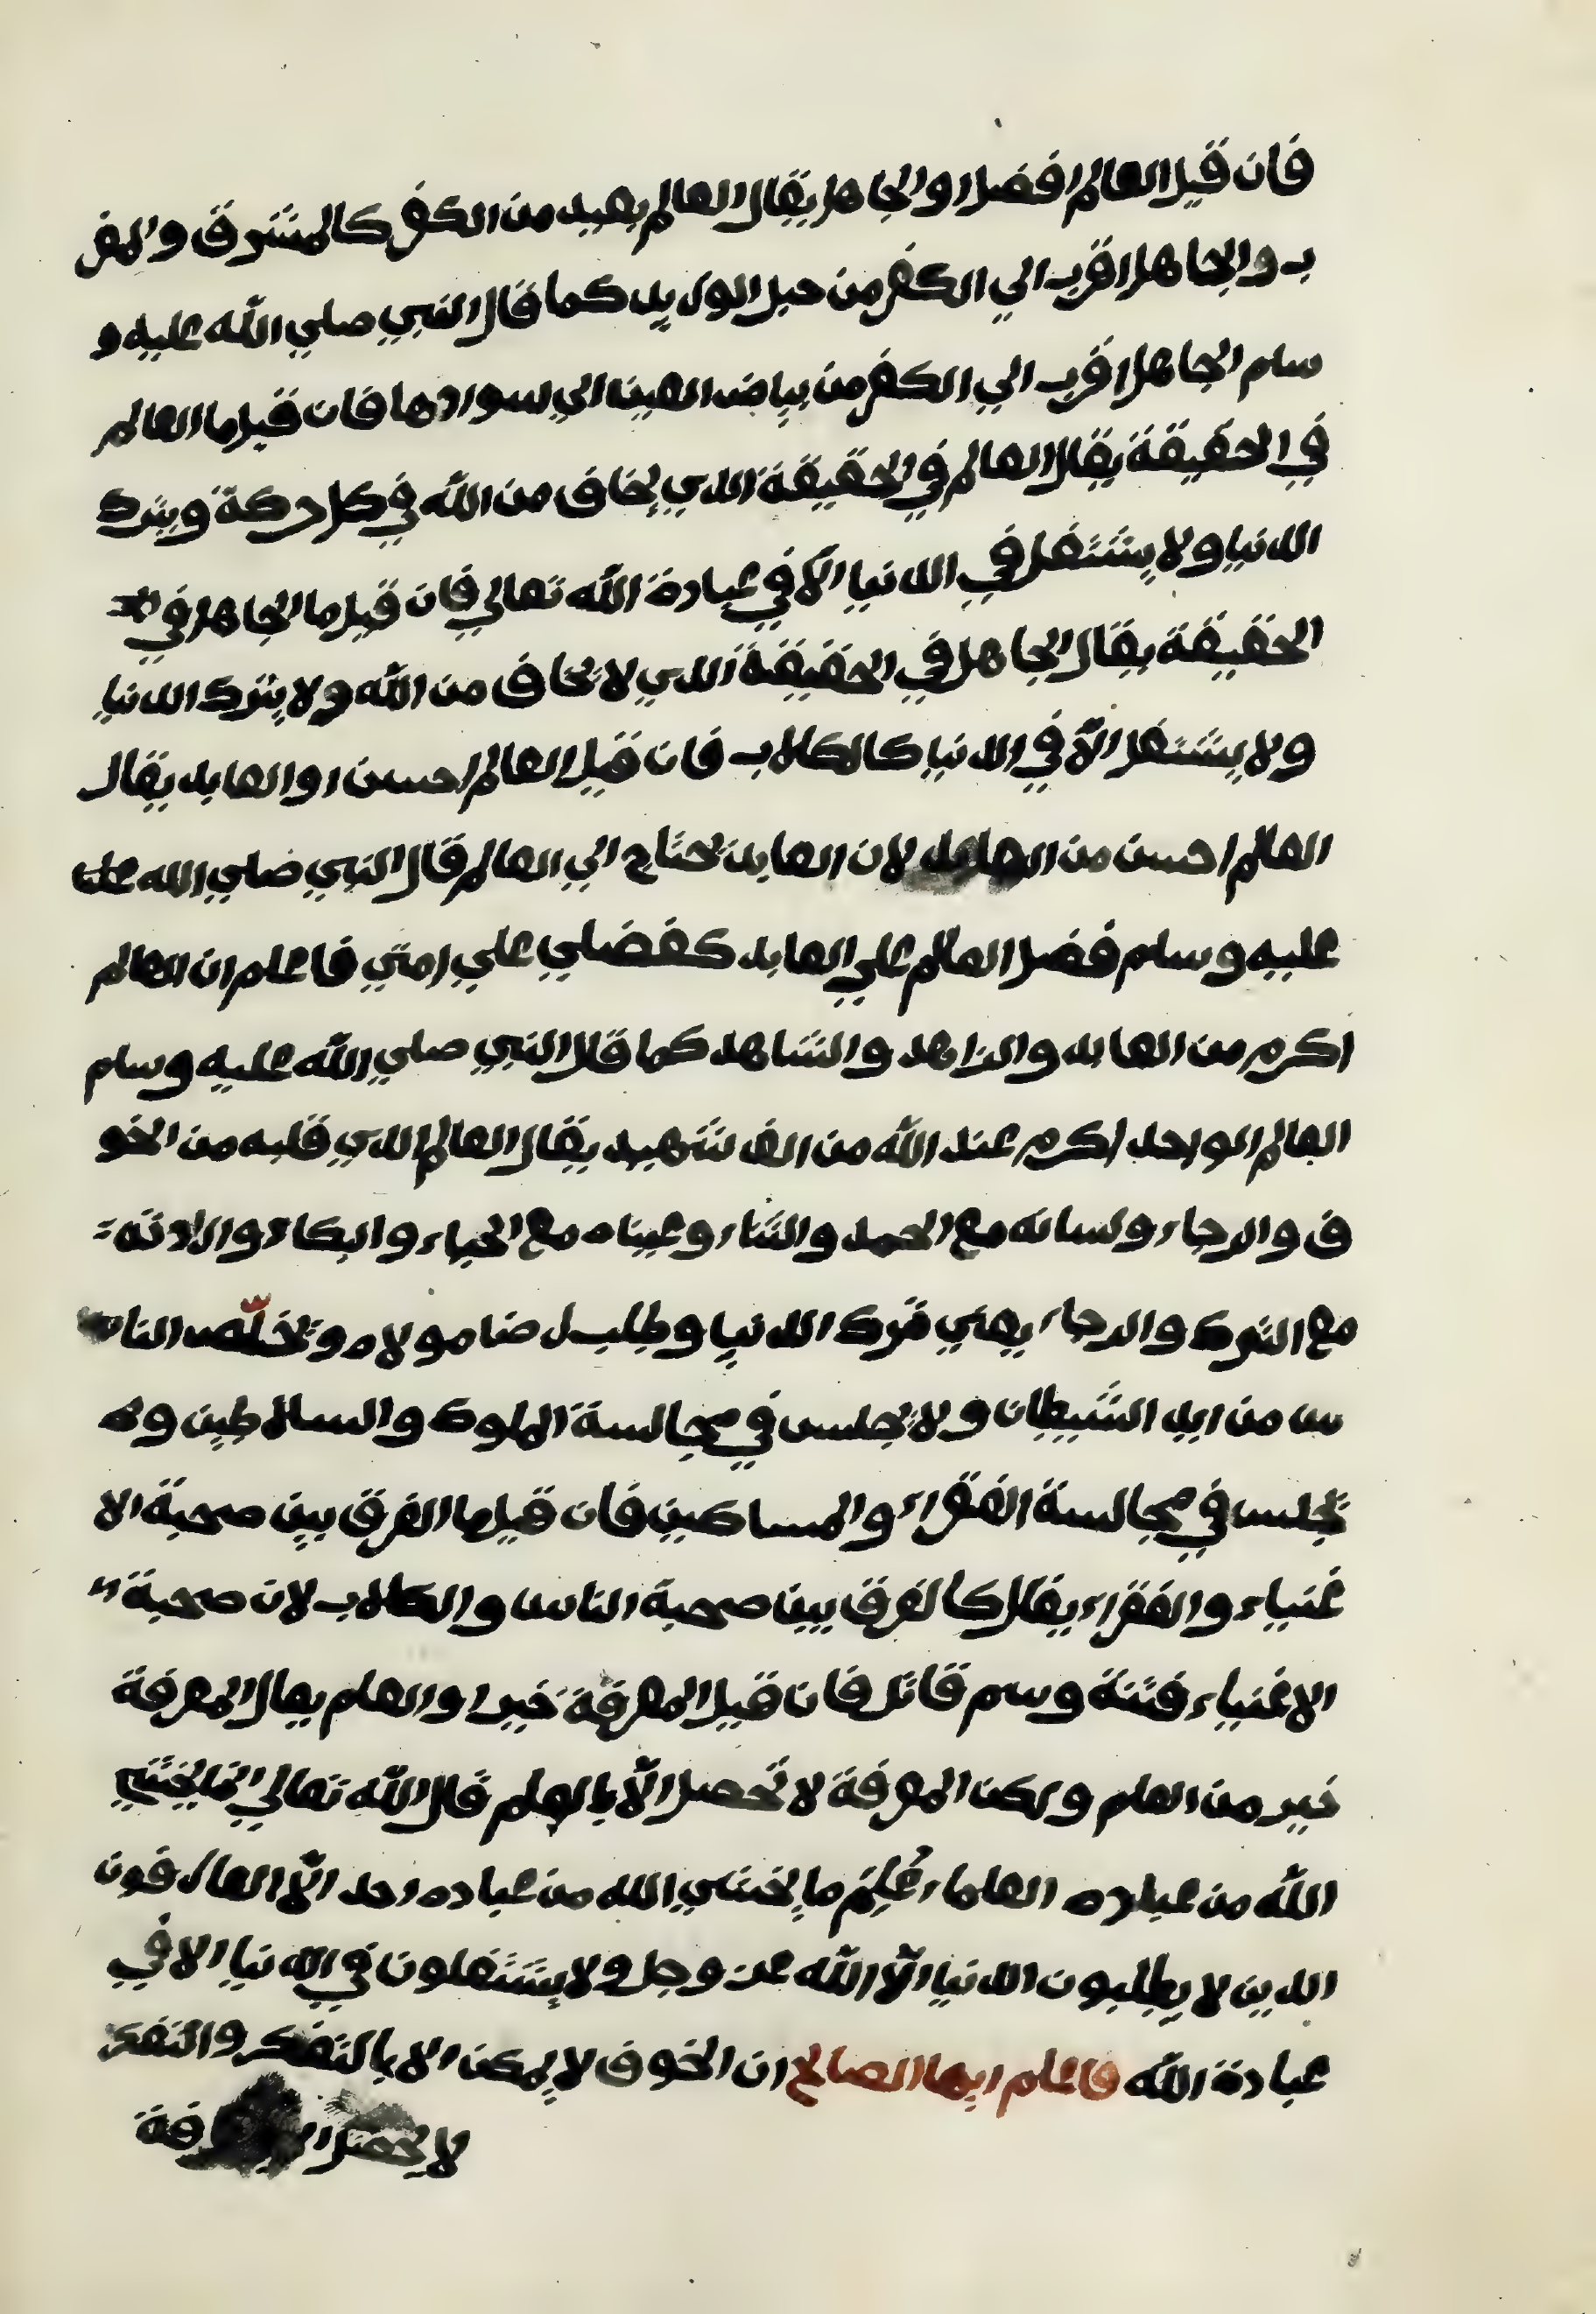 فان قيل العالم افضل او الجاهل يقال العالم بعيد من الكفر كالمشرق والمغر
ب والجاهل اقرب الي الكفر من حبل الوريد كما قال النبي صلي الله عليه و
سلم الجاهل اقرب الي الكفر من بياض العين الي سوادها فان قيل ما العالم
في الحقيقة يقال العالم في الحقيقة الذي يخاف من الله في كل حركة ويترك
الدنيا ولا يشتغل في الدنيا الّا في عبادة الله تعالي فان قيل ما الجاهل في
الحقيقة يقال الجاهل في الحقيقة الذي لا يخاف من الله ولا يترك الدنيا
ولا يشتغل الّا في الدنيا كالكلاب فان قيل العالم احسن او العابد يقال
العالم احسن من العابد لان العابد يحتاج الي العالم قال النبي صلي الله
عليه وسلم فضل العالم علي العابد كفضلي علي امتي فاعلم ان العالم
اكرم من العابد والزاهد والشاهد كما قال النبي صلي الله عليه وسلم
العالم الواحد اكرم عند الله من الف شهيد يقال العالم الذي قلبه من الخو
ف والرجاء ولسانه مع الحمد والثناء وعيناه مع الحياء والبكاء وارادته
مع الترك والرجاء يعني ترك الدنيا وطلب رضا مولاه وتخلّص النا
س من ايد الشيطان ولا يجلس في مجالسة الملوك والسلاطين و
يجلس في مجالسة الفقراء والمساكين فان قيل ما الفرق بين صحبة الا
غنياء والفقراء يقال كالفرق بين صحبة الناس والكلاب لان صحبة
الاغنياء فتنة وسم قاتل فان قيل المعرفة خير او العلم يقال المعرفة
خير من العلم ولكن المعرفة لا تحصل الّا بالعلم قال الله تعالي انما يخشي
الله من عباده العلماء عُلِمَ ما يخشي الله من عباده احد الّا العارفون
الذين لا يطلبون الدنيا الّا الله عز وجل ولا يشتغلون في الدنيا الا في
عبادة الله فاعلم ايها الصالح ان الخوف لا يمكن الا بالتفكر والتفكر
لا يحصل